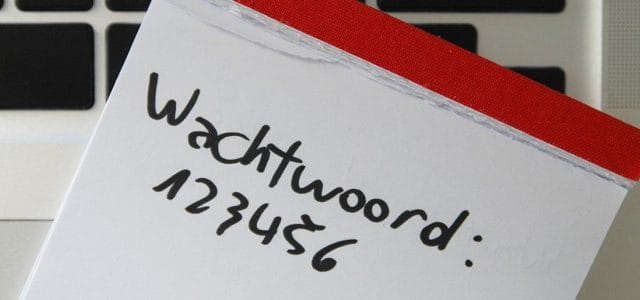 Wachtwoord:
123456